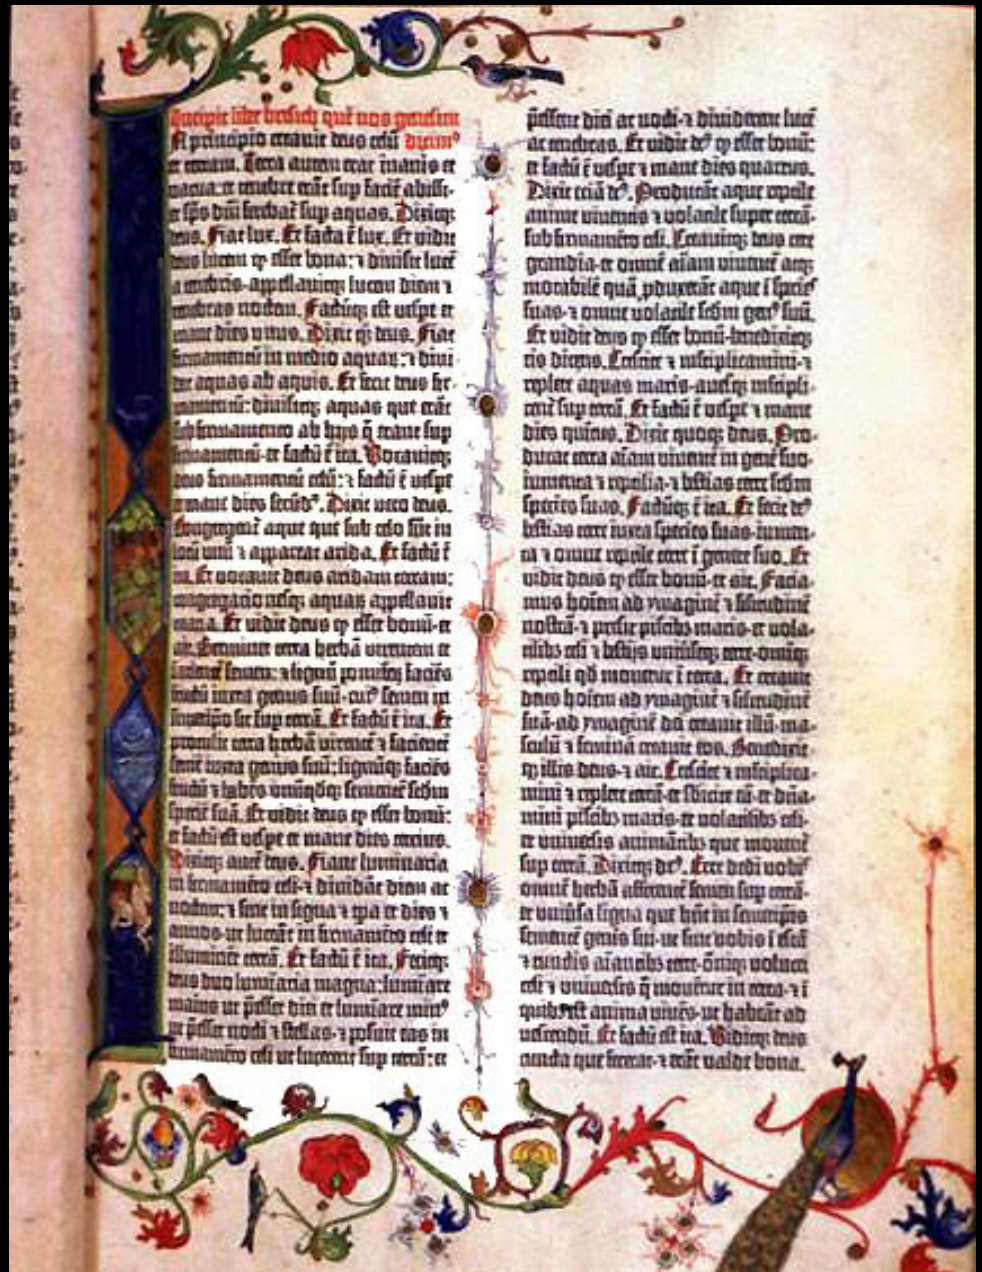 Incipit liber bresith quē nos genesim
N principio creavit deus celū dicimꝰ
et terram. Terra autem erat inanis et
vacua: et tenebre erāt sup faciē abissi:
et sp̄s dn̄i ferebat̄ sup aquas. Dixitq;
deus. Fiat lux. Et facta ē lux. Et vidit
deus lucem q esset bona: ⁊ divisit lucē
a tenebris· appellavitq; lucem diem ⁊
tenebras noctem. Factūq; est vespe et
mane dies unus. Dixit q̄; deus. Fiat
firmamentū in medio aquaꝝ: ⁊ divi⸗
dat aquas ab aquis. Et fecit deus fir⸗
mamentū: divisitq; aquas que erāt
sub firmamento ab hijs q̄ erant sup
firmamentū· et factū ē ita. Vocavitq;
deus firmamentū celū: ⁊ factū ē vespe
et mane dies secūdꝰ. Dixit vero deus.
Congregent̄ aque que sub celo sūt in
locū unū ⁊ appareat arida. Et factū ē
ita. Et vocavit deus aridam terram:
congregationesq; aquaꝝ appellavit
maria. Et vidit deus q esset bonū· et
ait. Germinet terra herbā virentem et
facientē semen: ⁊ lignū pomifeꝝ faciēs
fructū iuxta genus suū· cuiꝰ semen in
semetipo sit sup terrā. Et factū ē ita. Et
protulit terra herbā virentē ⁊ facientē
semē iuxta genus suū: lignūq; faciēs
fructū ⁊ habēs unūqdq; sementē scdm
specie suā. Et vidit deus q esset bonū:
et factū est vespe et mane dies tercius.
Dixitq; autē deus. Fiant luminaria
in firmamēto celi· ⁊ dividāt diem ac
noctem: ⁊ sint in signa ⁊ tpa et dies ⁊
annos· ut luceāt in firmamēto celi et
illuminēt terrā. Et factū ē ita. Fecitq;
deus duo luminaria magna: luminare
maius ut p̄esset diei et luminare minꝰ
ut p̄esset nocti ⁊ stellas· ⁊ posuit eas in
firmamēto celi ut lucerent sup terrā: et
p̄essent diei ac nocti· ⁊ dividerent lucē
ac tenebras. Et vidit deꝰ q esset bonū:
et factū ē vespe ⁊ mane dies quartus.
Dixit eciā deꝰ. Producāt aque reptile
anime viventis ⁊ volatile super terrā·
sub firmamēto celi. Creavitq; deus cete
grandia· et omnē aīam viventē atq;
motabilē quā pduxerāt aque ī speciēꝰ
suas· ⁊ omne volatile scdm genꝰ suū.
Et vidit deus q esset bonū· benedixitq;
eis dicens. Crescite ⁊ multiplicamini· ⁊
replete aquas maris· avesq; multipli⸗
cent̄ sup terrā. Et factū ē vespe ⁊ mane
dies quintus. Dixit quoq; deus. Pro⸗
ducat terra aīam viventē in genē suo·
iumenta ⁊ reptilia· ⁊ bestias terre scdm
species suas. Factūq; ē ita. Et fecit deꝰ
bestias terre iuxta species suas· iumen⸗
ta ⁊ omne reptile terre ī genere suo. Et
vidit deus q esset bonū· et ait. Facia⸗
mus hoīem ad ymaginē ⁊ similitudinē
nostrā· ⁊ presit piscibꝫ maris· et vola⸗
tilibꝫ celi ⁊ bestijs universeq; terre· omniq;
reptili qd movetur ī terra. Et creavit
deus hoīem ad ymaginē ⁊ similitudinē
suā· ad ymaginē dei creavit illū· ma⸗
sculū ⁊ feminā creavit eos. Benedixit⸗
q; illis deus· ⁊ ait. Crescite ⁊ multiplica⸗
mini ⁊ replete terrā· et subicite eā· et dn̄a⸗
mini piscibꝫ maris· et volatilibꝫ celi·
et universis animātibꝫ que moventē
sup terrā. Dixitq; deꝰ. Ecce dedi vobis
omnē herbā afferentē semen sup terrā·
et universa ligna que hn̄t in semetipis
sementē generis sui· ut sint vobis ī escā
⁊ cunctis aīantibꝫ terre· oīniq; volucri
celi ⁊ universis q̄ moventur in terra· ⁊ ī
quibꝫ est anima vivēs· ut habeāt ad
vescendū. Et factū est ita. Viditq; deus
cuncta que fecerat· ⁊ erāt valde bona.